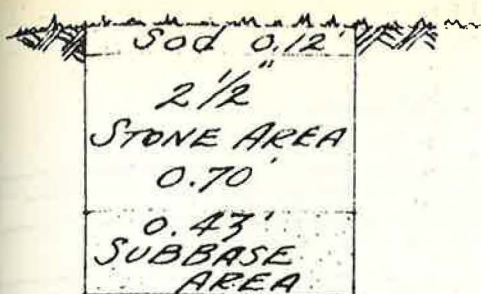 Sod 0.12'
2 1/2"
STONE AREA
0.70'
0.43'
SUBBASE
AREA